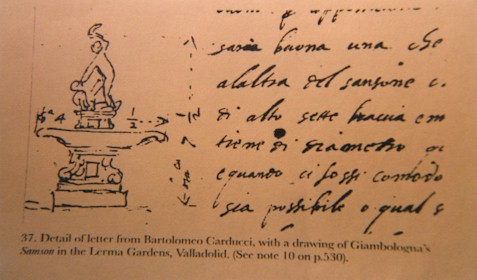 saria buona una che
alaltra del sansone c.
di alto sette braccia em
tiene di diametro
equando ci fossi comodo
sia possibile o qual s
4 1/2
7 1/2
37. Detail of letter from Bartolomeo Carducci, with a drawing of Giambologna's
Samson in the Lerma Gardens, Valladolid. (See note 10 on p.530).